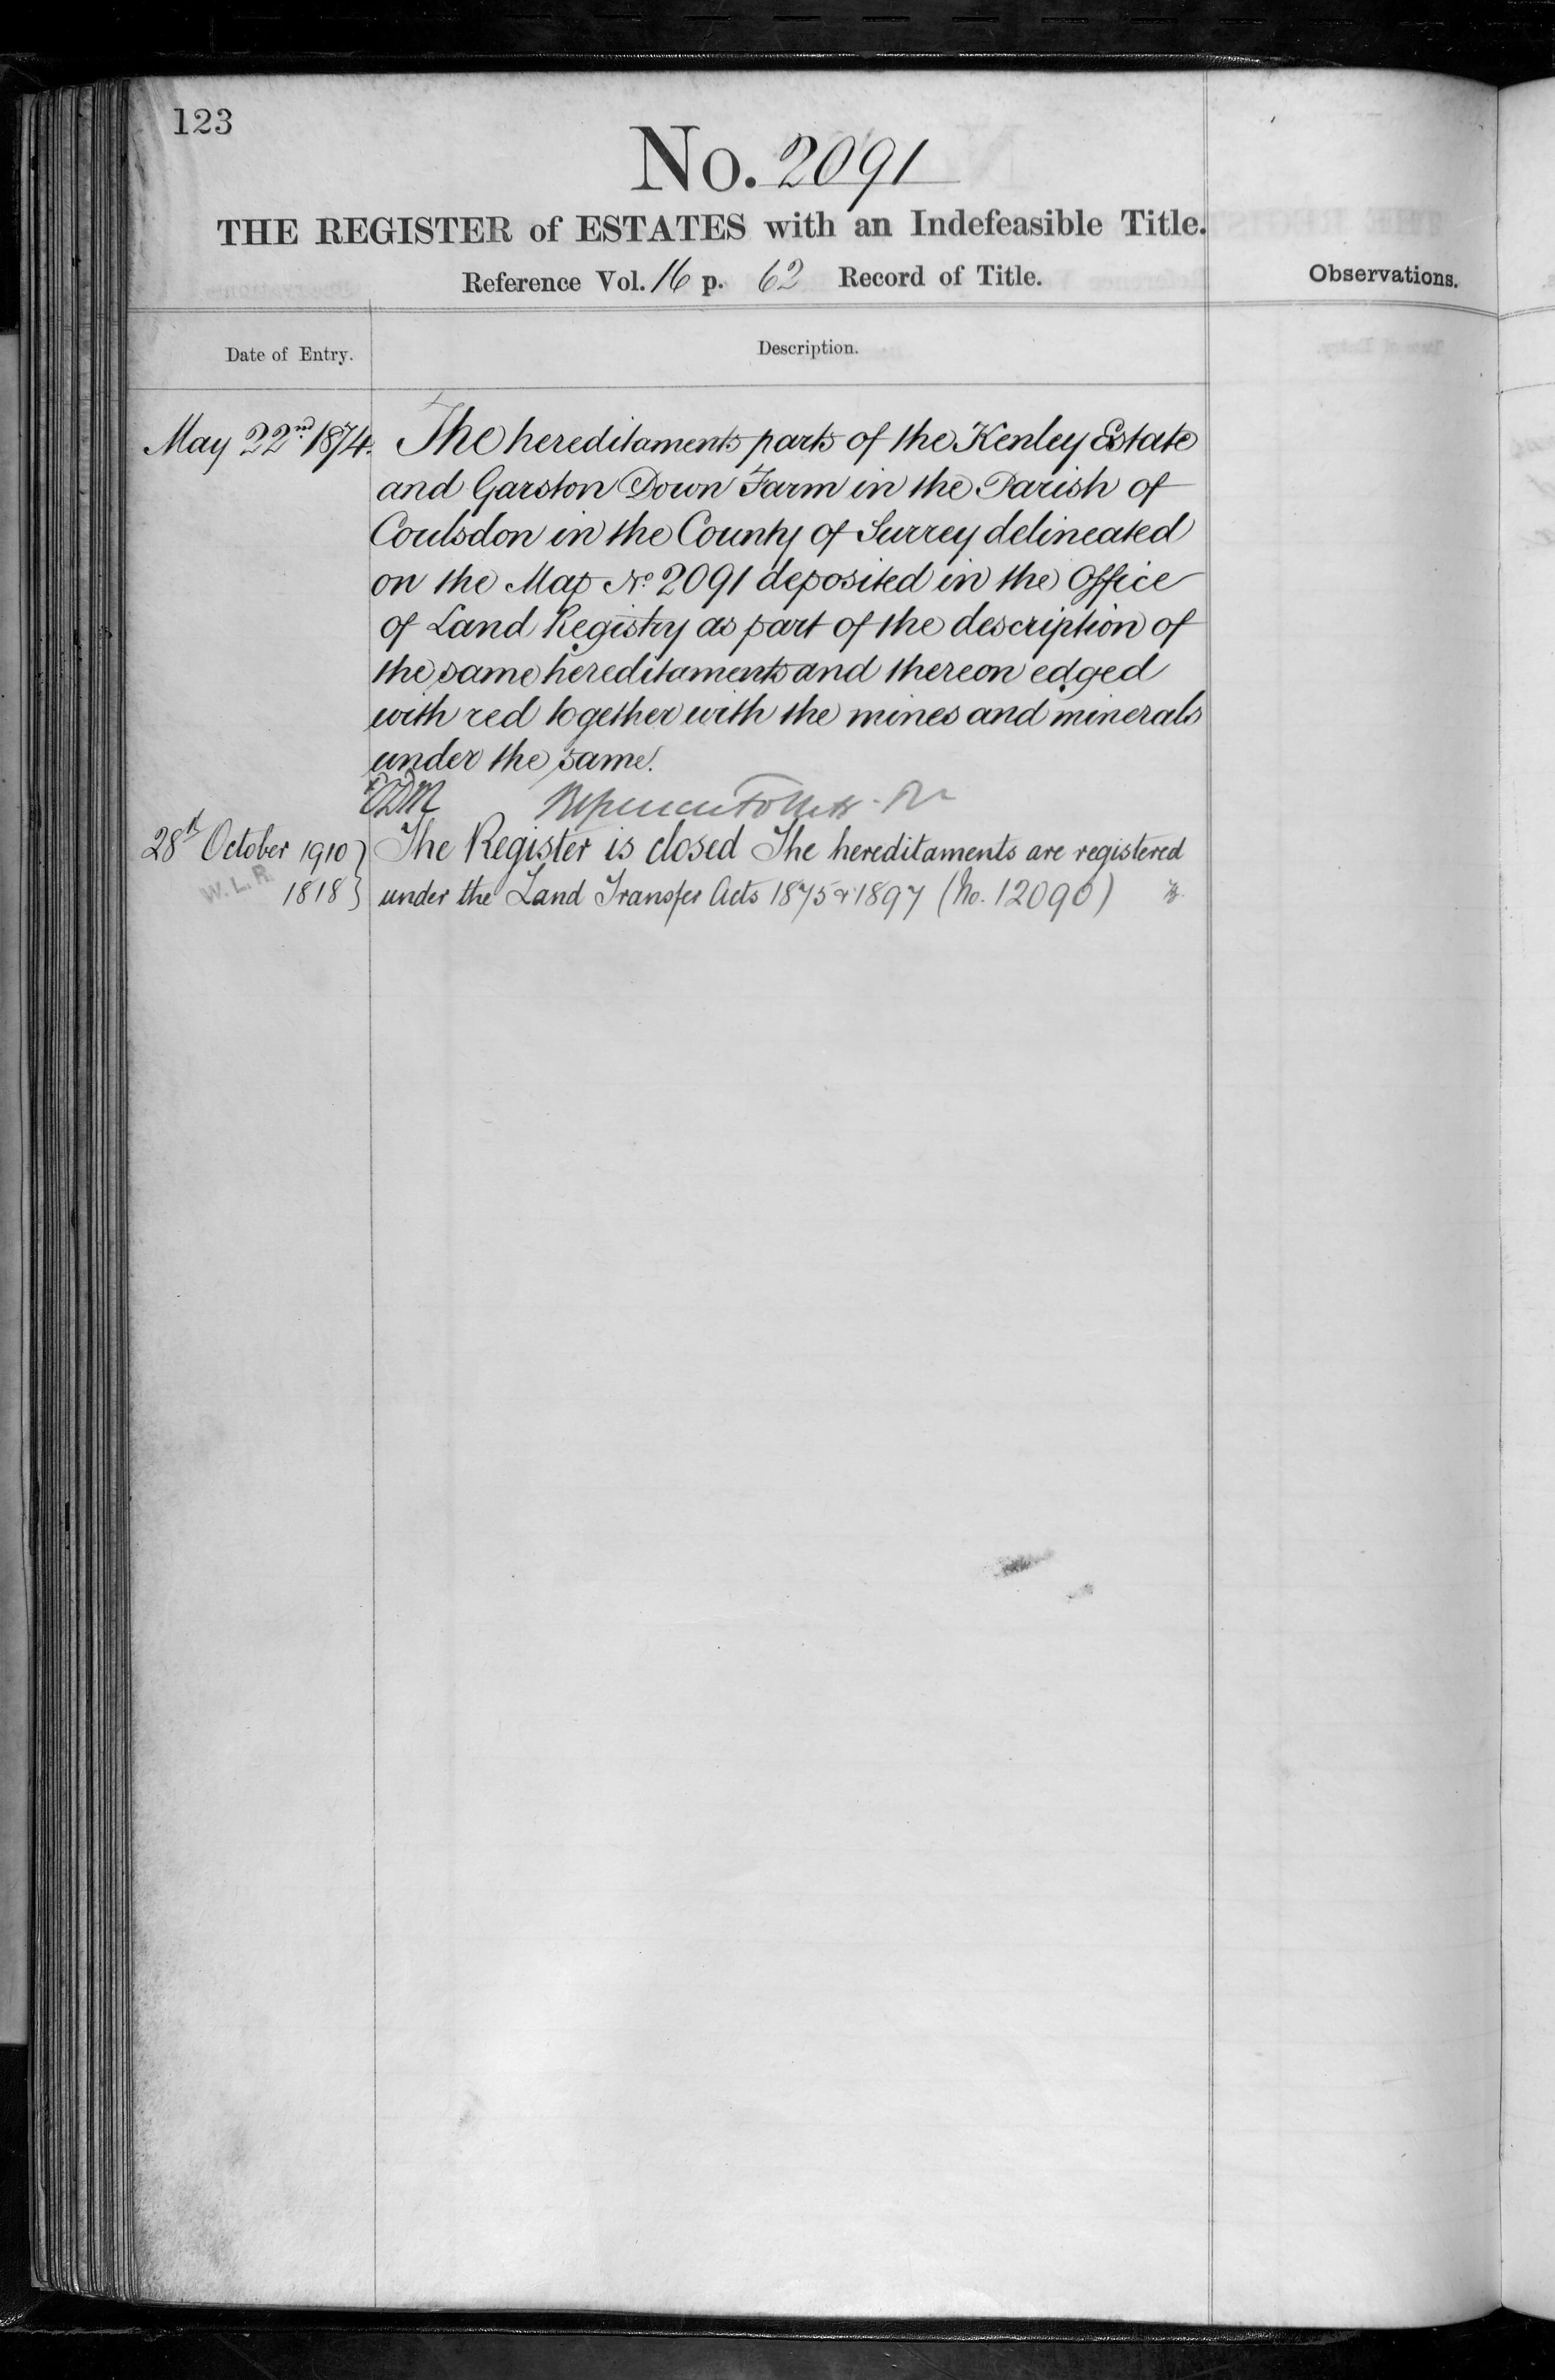 123
No. 2091
THE REGISTER of ESTATES with an Indefeasible Title.
Reference Vol. 16 p. 62 Record of Title.
Observations.
Date of Entry.
Description.
May 22nd 1874. The hereditaments parts of the Kenley Estate
and Garston Down Farm in the Parish of
Coulsdon in the County of Surrey delineated
on the Map No. 2091 deposited in the Office
of Land Registry as part of the description of
the same hereditaments and thereon edged
with red together with the mines and minerals
under the same.
28th October 1910 } The Register is closed The hereditaments are registered
W.L.R. 1818 } under the Land Transfer Acts 1875 & 1897 (No. 12090)